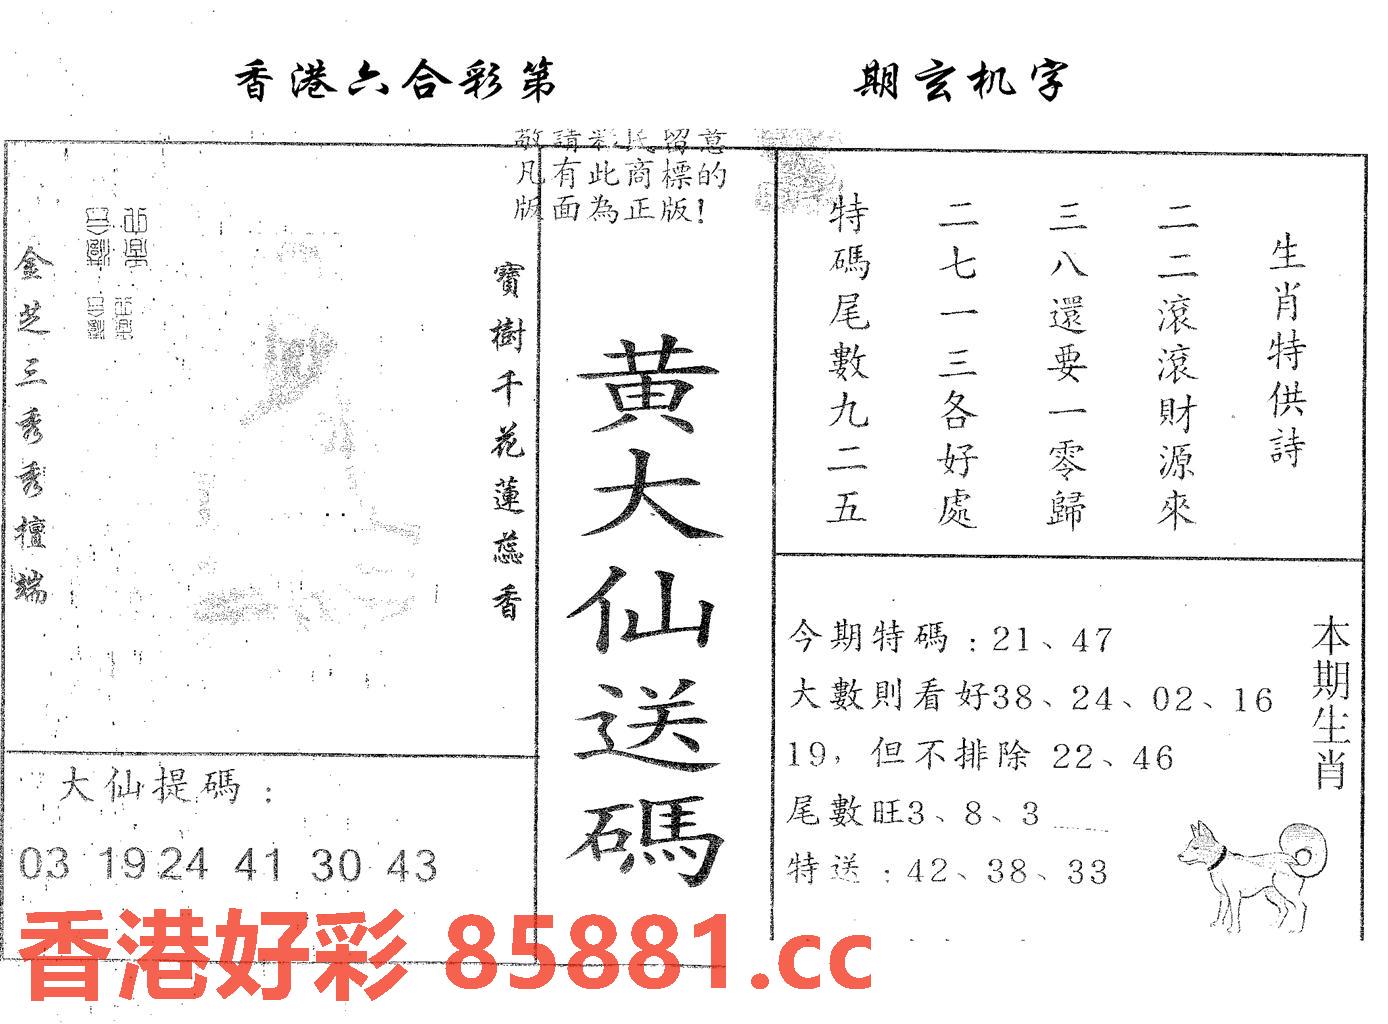 香港六合彩第 期玄机字
敬請彩民留意
凡有此商標的
版面為正版!
金芝三秀秀檀端
寶樹千花蓮蕊香
黄大仙送碼
生肖特供詩
二二滾滾財源來
三八還要一零歸
二七一三各好處
特碼尾數九二五
大仙提碼：
03 19 24 41 30 43
本期生肖
今期特碼：21、47
大數則看好38、24、02、16
19，但不排除 22、46
尾數旺3、8、3
特送：42、38、33
香港好彩 85881.cc